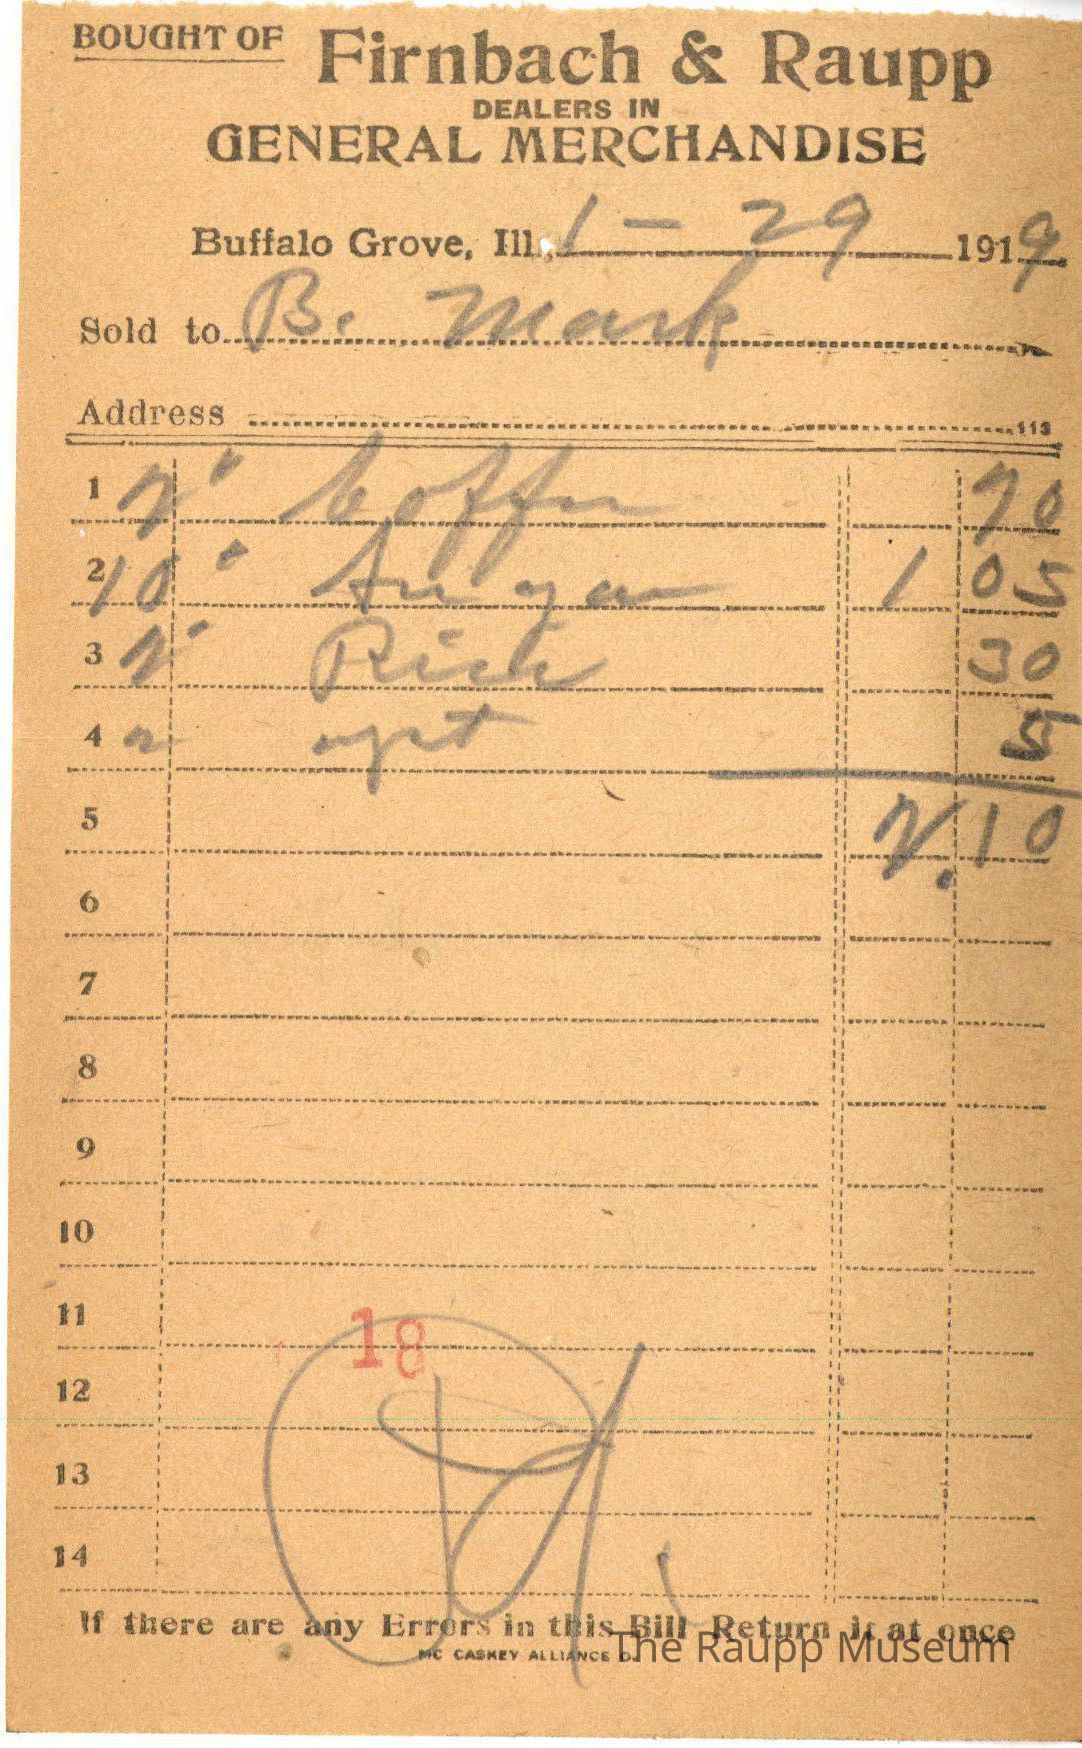 BOUGHT OF Firnbach & Raupp
DEALERS IN
GENERAL MERCHANDISE
Buffalo Grove, Ill., 1 - 29 1919
Sold to B. Mark
Address
113
1 2 " Coffee 70
2 10 " Sugar 1 05
3 2 " Rice 30
4 5
5 2.10
6
7
8
9
10
11
18
12
13
14
If there are any Errors in this Bill Return it at once
MC CASKEY ALLIANCE O.
The Raupp Museum